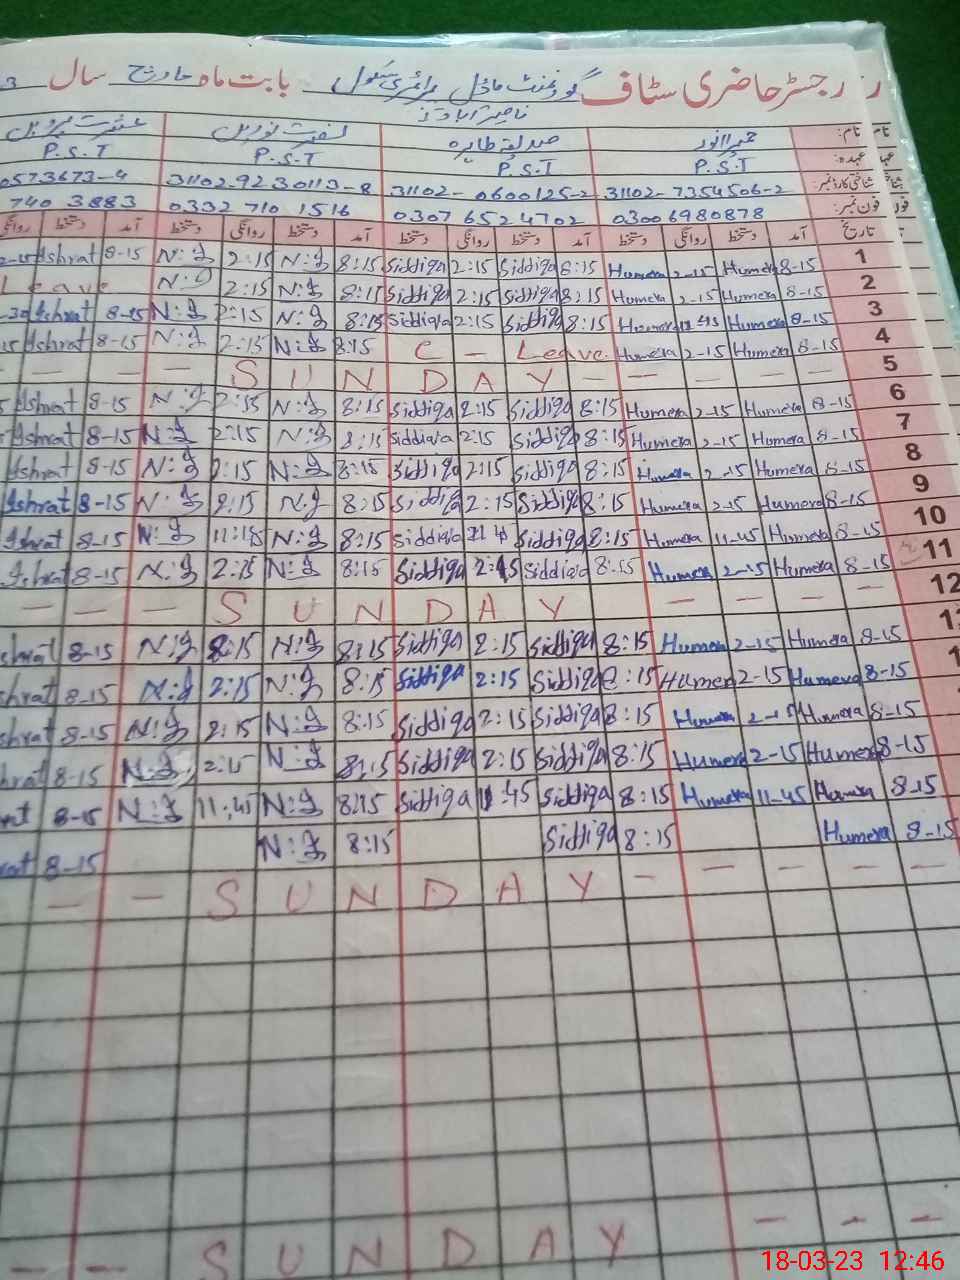 رجسٹر حاضری سٹاف گورنمنٹ ماڈل پرائمری سکول بابت ماہ مارچ سال 3
ناصر آباد
نام: حمیرا انور صدیقہ طاہرہ نفت نورین عشرت پروین
عہدہ: P.S.T P.S.T P.S.T P.S.T
شناختی کارڈ نمبر: 31102-7354506-2 31102-0600125-2 31102-9230113-8 0573673-4
فون نمبر: 03006980878 0307 6524702 0332 710 1516 740 3883
تاریخ آمد دستخط روانگی دستخط آمد دستخط روانگی دستخط آمد دستخط روانگی دستخط آمد دستخط روانگی
1 8-15 Humera 2-15 Humera 8:15 Siddiqa 2:15 Siddiqa 8:15 N:J 2:15 N:J 8-15 Ishrat
2 8-15 Humera 2-15 Humera 8:15 Siddiqa 2:15 Siddiqa 8:15 N:J 2:15 N:J Leave
3 8-15 Humera Humera 8:15 Siddiqa 2:15 Siddiqa 8:15 N:J 2:15 N:J 8-15 Ishrat
4 8-15 Humera 2-15 Humera C - Leave 8:15 N:J 2:15 N:J 8-15 Ishrat
5 - - - S U N D A Y - - -
6 8-15 Humera 2-15 Humera 8:15 Siddiqa 2:15 Siddiqa 8:15 N:J 2:15 N:J 8-15 Ishrat
7 8-15 Humera 2-15 Humera 8:15 Siddiqa 2:15 Siddiqa 8:15 N:J 2:15 N:J 8-15 Ishrat
8 8-15 Humera 2-15 Humera 8:15 Siddiqa 2:15 Siddiqa 8:15 N:J 2:15 N:J 8-15 Ishrat
9 8-15 Humera 2-15 Humera 8:15 Siddiqa 2:15 Siddiqa 8:15 N:J 2:15 N:J 8-15 Ishrat
10 8-15 Humera 11-45 Humera 8:15 Siddiqa Siddiqa 8:15 N:J N:J 8-15 Ishrat
11 8-15 Humera 2-15 Humera 8:15 Siddiqa 2:15 Siddiqa 8:15 N:J 2:15 N:J 8-15 Ishrat
12 - - - S U N D A Y - - -
8-15 Humera 2-15 Humera 8:15 Siddiqa 2:15 Siddiqa 8:15 N:J 2:15 N:J 8-15 shrat
8-15 Humera 2-15 Humera 8:15 Siddiqa 2:15 Siddiqa 8:15 N:J 2:15 N:J 8-15 shrat
8-15 Humera 2-15 Humera 8:15 Siddiqa 2:15 Siddiqa 8:15 N:J 2:15 N:J 8-15 shrat
8-15 Humera 2-15 Humera 8:15 Siddiqa 2:15 Siddiqa 8:15 N:J 2:15 N:J 8-15 hrat
8-15 Humera 11-45 Humera 8:15 Siddiqa 11:45 Siddiqa 8:15 N:J 11:45 N:J 8-15 rat
8-15 Humera 8:15 Siddiqa 8:15 N:J 8-15 rat
- - - - S U N D A Y - -
- - - S U N D A Y - -
18-03-23 12:46